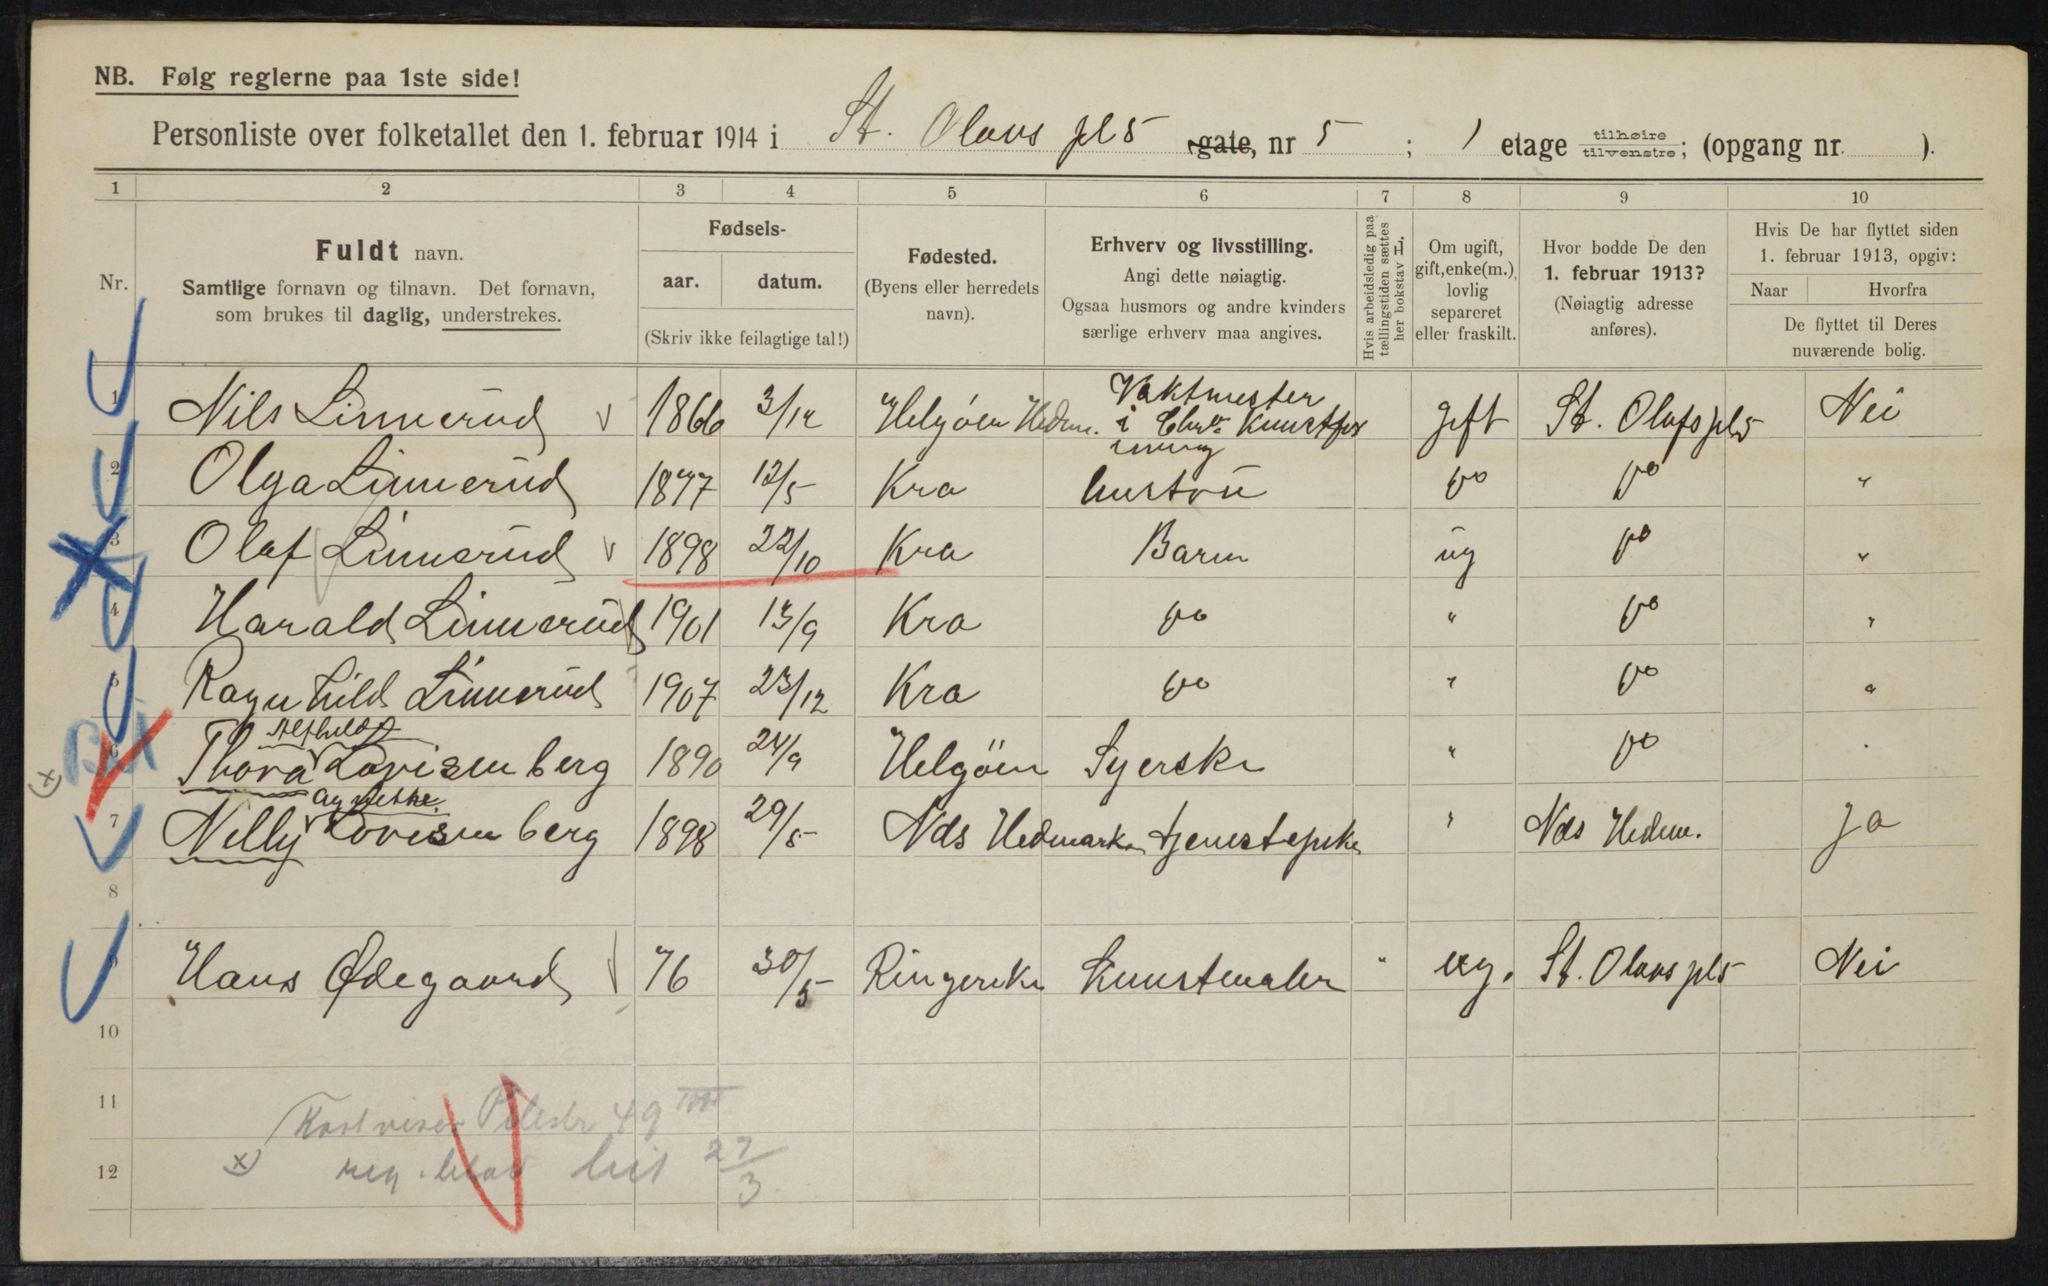 NB. Følg reglerne paa 1ste side!
Personliste over folketallet den 1. februar 1914 i St. Olavs pl 5 gate, nr 5; 1 etage tilhøire tilvenstre; (opgang nr. ).
1 2 3 4 5 6 7 8 9 10
Nr.
Fuldt navn.
Samtlige fornavn og tilnavn. Det fornavn,
som brukes til daglig, understrekes.
Fødsels-
aar. datum.
(Skriv ikke feilagtige tal!)
Fødested.
(Byens eller herredets
navn).
Erhverv og livsstilling.
Angi dette nøiagtig.
Ogsaa husmors og andre kvinders
særlige erhverv maa angives.
Hvis arbeidsledig paa
tællingstiden sættes
her bokstav L.
Om ugift,
gift, enke(m.),
lovlig
separeret
eller fraskilt.
Hvor bodde De den
1. februar 1913?
(Nøiagtig adresse
anføres).
Hvis De har flyttet siden
1. februar 1913, opgiv:
Naar Hvorfra
De flyttet til Deres
nuværende bolig.
1 Nils Linnerud 1866 3/12 Helgöen Hedm. Vaktmester i Chra Kunstforening gift St. Olafs pl 5 Nei
2 Olga Linnerud 1877 12/5 Kra hustru do do "
3 Olaf Linnerud 1898 22/10 Kra Barn ug do "
4 Harald Linnerud 1901 13/9 Kra do " do "
5 Ragnhild Linnerud 1907 23/12 Kra do " do "
6 Thora Alfhild Lovisenberg 1890 24/9 Helgöen Syerske " do
7 Nelly Agnethe Lovisenberg 1898 29/5 Nds Hedmarken tjenestepike " Nds Hedm. Ja
8
9 Hans Ødegaard 76 30/5 Ringerike Kunstmaler " ug. St. Olavs pl 5 Nei
10
11
x) reg. hit 27/3
12